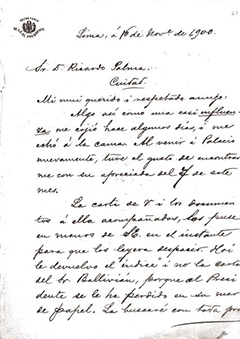 Lima, á 16 de Nov.e de 1900.
Sr. D. Ricardo Palma.
Ciudad.
Mi mui querido i respetado amigo:
Algo asi como una casi influen-
za me cojió hace algunos dias, i me
echó á la cama. Al venir á Palacio
nuevamente, tuve el gusto de encontrar
me con su apreciada del 7 de este
mes.
La carta de V. i los documen
tos á ella acompañados, los puse
en manos de S.E. en el instante
para que los leyera despacio. Hoi
le devuelvo el indice i no la carta
del Sr. Ballivián, porque al Presi
dente se le ha perdido en su mar
de papel. La buscaré con toda pro